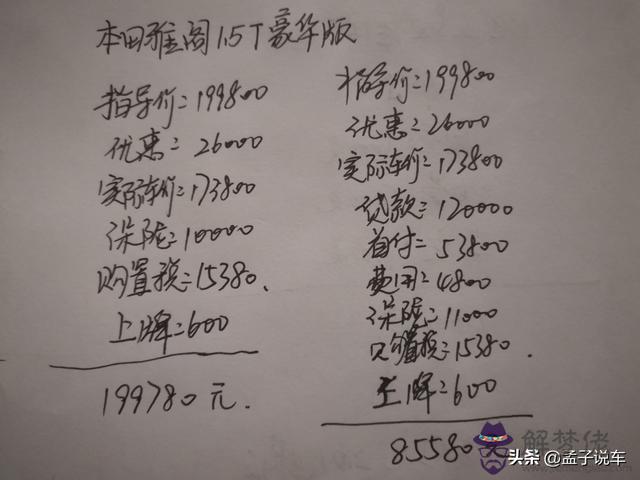 本田雅阁1.5T豪华版
指导价=199800
优惠=26000
实际车价=173800
保险=10000
购置税=15380.
上牌=600
199780元.
指导价=199800
优惠=26000
实际车价=173800
贷款=120000
首付=53800
费用=4800
保险=11000
购置税=15380.
上牌=600
85580元
解梦佬
头条@孟子说车